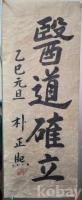 醫道確立
乙巳元旦 朴正熙
kobay